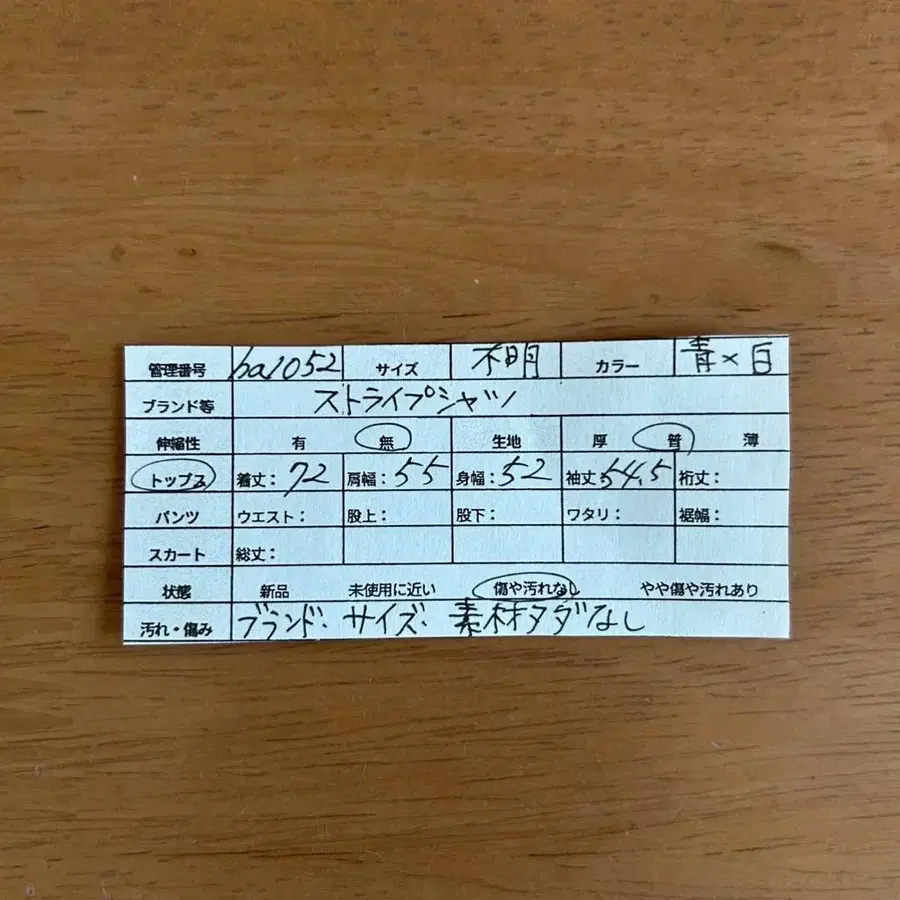 管理番号 ba1052 サイズ 不明 カラー 青×白
ブランド等 ストライプシャツ
伸縮性 有 無 生地 厚 普 薄
トップス 着丈：72 肩幅：55 身幅：52 袖丈：54.5 裄丈：
パンツ ウエスト： 股上： 股下： ワタリ： 裾幅：
スカート 総丈：
状態 新品 未使用に近い 傷や汚れなし やや傷や汚れあり
汚れ・傷み ブランド、サイズ、素材タダなし